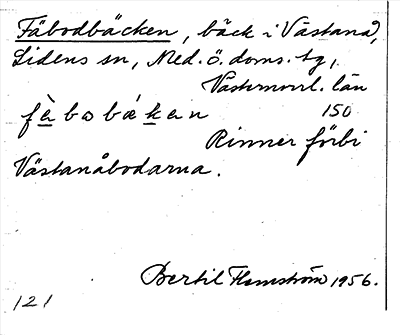 Fäbodbäcken, bäck i Västanå,
Lidens sn, Med. ö. doms. tg,
Västernorrl. län
fὲbobákan 150
Rinner förbi
Västanåbodarna.
Bertil Flemström 1956.
121